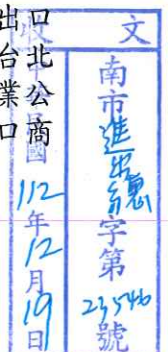 收文
南市進出字第23546號
民國112年12月19日
口北公商
出台業口